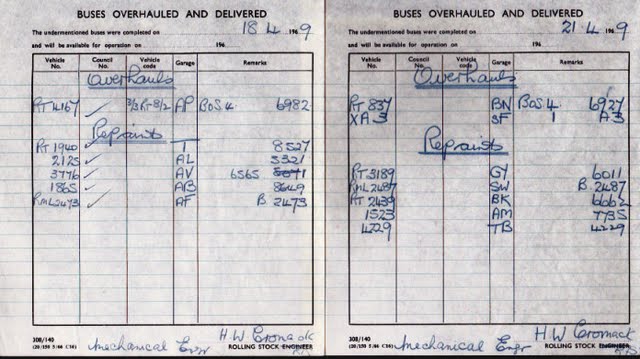 BUSES OVERHAULED AND DELIVERED
The undermentioned buses were completed on 18 4 1969
and will be available for operation on 196
Vehicle No. Council No. Vehicle code Garage Remarks
Overhauls
RT4167 ✓ 3/2RT8/2 AP BOS 4. 6982
Repaints
RT 1940 ✓ T 8527
2125 ✓ AL 5321
3776 ✓ AV 6565
1865 ✓ AB 8649
RML2473 ✓ AF B. 2473
308/140
(20/150 5/66 C10)
Mechanical Engr
H W Cromack
ROLLING STOCK ENGINEER
BUSES OVERHAULED AND DELIVERED
The undermentioned buses were completed on 21 4 1969
and will be available for operation on 196
Vehicle No. Council No. Vehicle code Garage Remarks
Overhauls
RT 837 BN BOS 4. 6927
XA 3 SF 1 A3
Repaints
RT3189 GY 6011
RML2487 SW B. 2487
RT 2439 BK 6662
1523 AM 7735
4229 TB 4229
308/140
(20/150 5/66 C10)
Mechanical Engr
H W Cromack
ROLLING STOCK ENGINEER